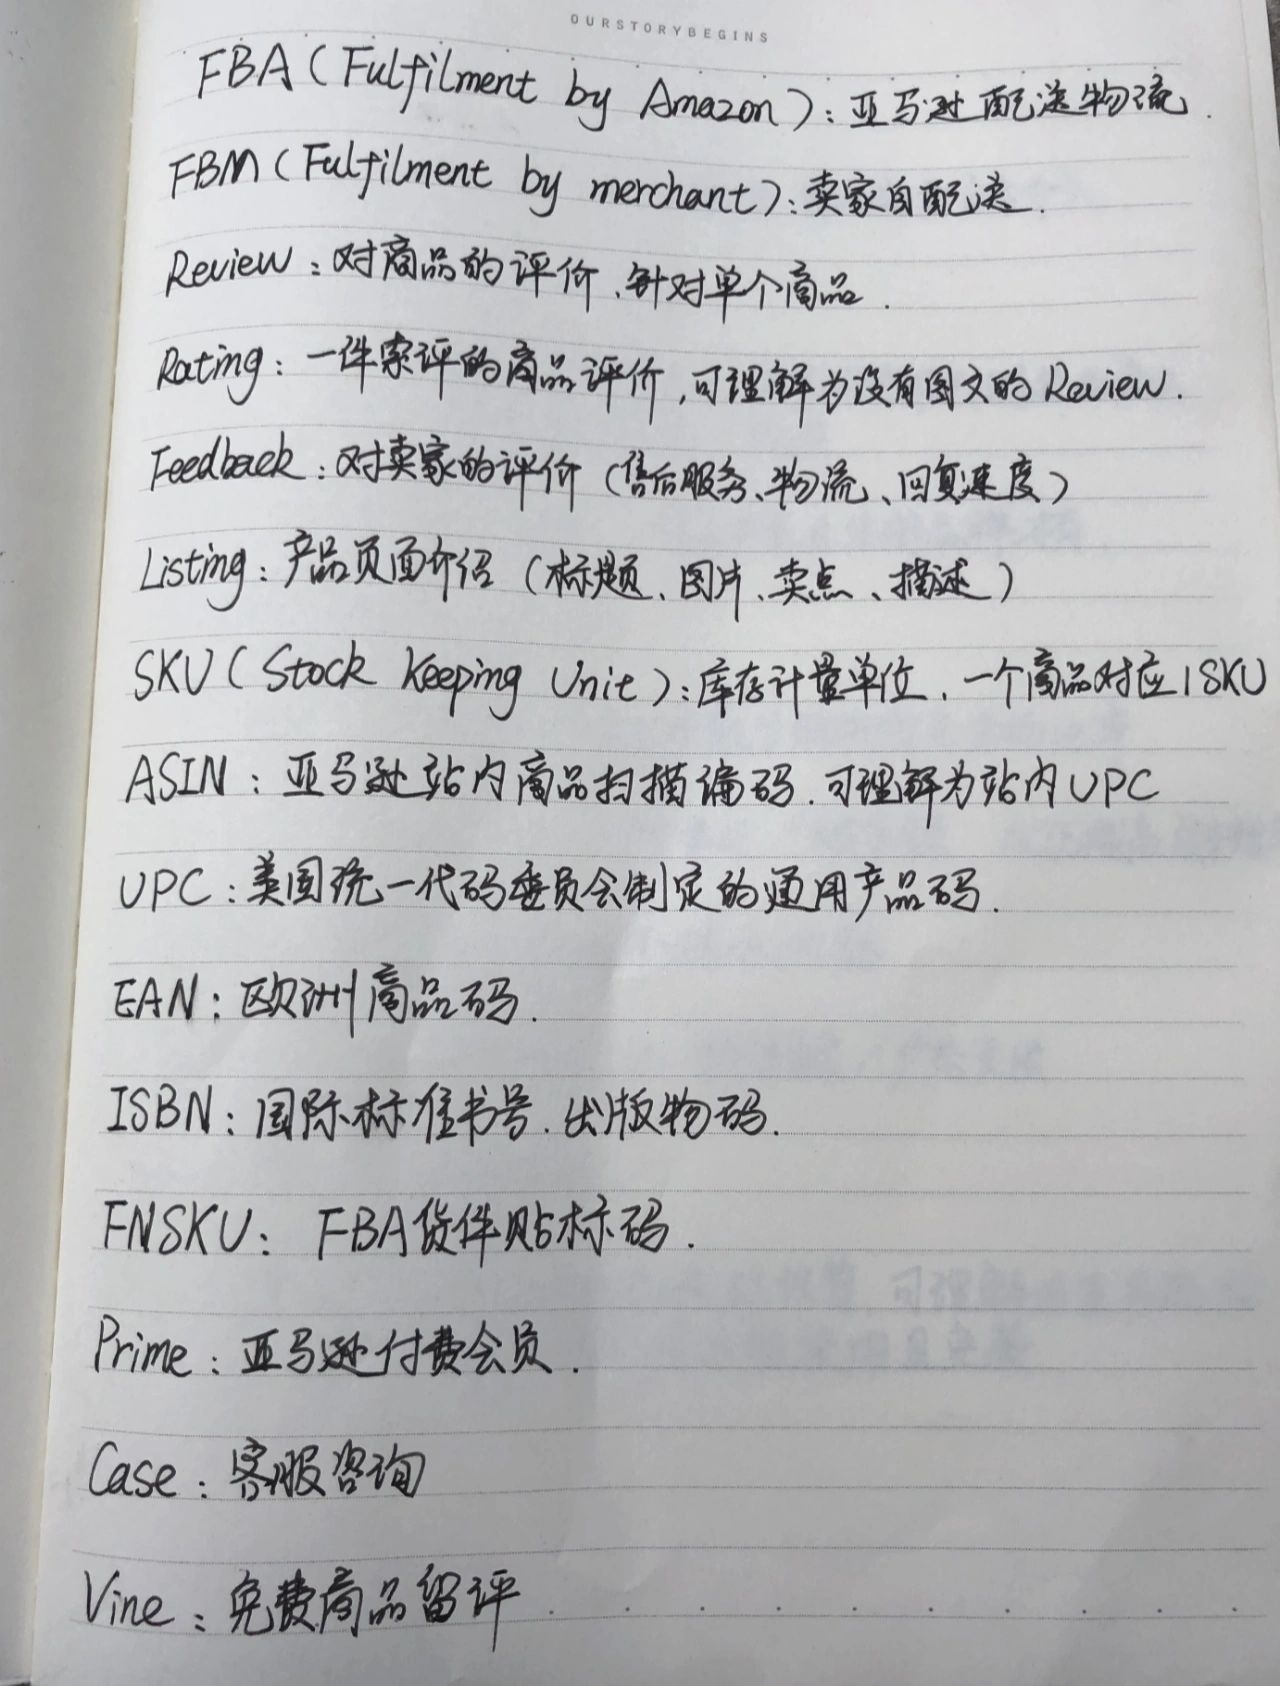 OURSTORYBEGINS
FBA(Fulfilment by Amazon):亚马逊配送物流.
FBM(Fulfilment by merchant):卖家自配送.
Review:对商品的评价、针对单个商品.
Rating:一件索评的商品评价,可理解为没有图文的Review.
Feedback:对卖家的评价(售后服务、物流、回复速度)
Listing:产品页面介绍(标题、图片、卖点、描述)
SKU(Stock Keeping Unit):库存计量单位、一个商品对应1SKU
ASIN:亚马逊站内商品扫描编码.可理解为站内UPC
UPC:美国统一代码委员会制定的通用产品码.
EAN:欧洲商品码.
ISBN:国际标准书号.出版物码.
FNSKU:FBA货件贴标码.
Prime:亚马逊付费会员.
Case:客服咨询
Vine:免费商品留评